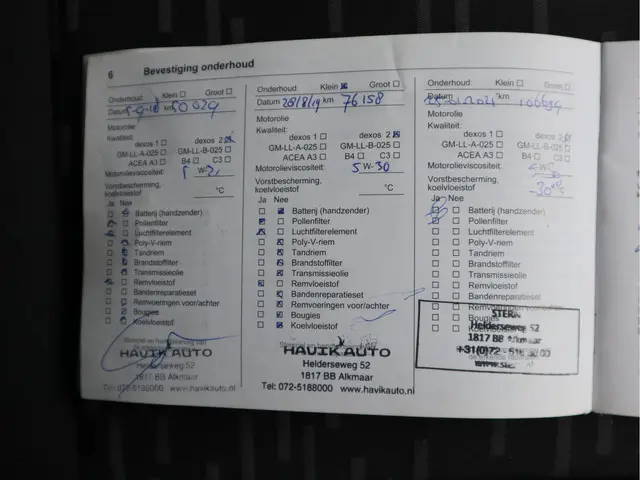 6 Bevestiging onderhoud
Onderhoud: Klein ☐ Groot ☐
Datum km 50029
Motorolie
Kwaliteit:
dexos 1 ☐ dexos 2 ☒
GM-LL-A-025 ☐ GM-LL-B-025 ☐
ACEA A3 ☐ B4 ☐ C3 ☐
Motorolieviscositeit: W-
Vorstbescherming,
koelvloeistof °C
Ja Nee
Batterij (handzender)
Pollenfilter
Luchtfilterelement
Poly-V-riem
Tandriem
Brandstoffilter
Transmissieolie
Remvloeistof
Bandenreparatieset
Remvoeringen voor/achter
Bougies
Koelvloeistof
HAVIK AUTO
Helderseweg 52
1817 BB Alkmaar
Tel: 072-5188000 www.havikauto.nl
Onderhoud: Klein ☒ Groot ☐
Datum 28/8/19 km 76158
Motorolie
Kwaliteit:
dexos 1 ☐ dexos 2 ☒
GM-LL-A-025 ☐ GM-LL-B-025 ☐
ACEA A3 ☐ B4 ☐ C3 ☐
Motorolieviscositeit: 5 W-30
Vorstbescherming,
koelvloeistof °C
Ja Nee
Batterij (handzender)
Pollenfilter
Luchtfilterelement
Poly-V-riem
Tandriem
Brandstoffilter
Transmissieolie
Remvloeistof
Bandenreparatieset
Remvoeringen voor/achter
Bougies
Koelvloeistof
HAVIK AUTO
Helderseweg 52
1817 BB Alkmaar
Tel: 072-5188000 www.havikauto.nl
Onderhoud: Klein ☐ Groot ☐
Datum km
Motorolie
Kwaliteit:
dexos 1 ☐ dexos 2 ☒
GM-LL-A-025 ☐ GM-LL-B-025 ☐
ACEA A3 ☐ B4 ☐ C3 ☐
Motorolieviscositeit: W-
Vorstbescherming,
koelvloeistof -30 °C
Ja Nee
Batterij (handzender)
Pollenfilter
Luchtfilterelement
Poly-V-riem
Tandriem
Brandstoffilter
Transmissieolie
Remvloeistof
Bandenreparatieset
Remvoeringen voor/achter
Bougies
STERN
Helderseweg 52
1817 BB Alkmaar